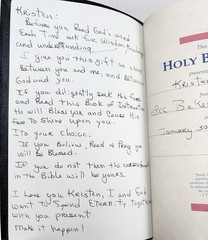 Kristen:
Before you Read God's word
Each Time ask five Wisdom, Knowledge
and understanding.
I give you this gift as a
Between you and me, and between
God and you.
If you diligently seek Him
and Read this Book of Instruction
He will Bless you and Cause His
face To Shine upon you.
Its your choice.
If you Believe, Read & Pray you
will be Blessed.
If you do not then the
in the Bible will be yours.
I love you Kristen, I and God
want to Spend Eternity Together
with you present
Make it happen!
HOLY B
presente
Kristen
January